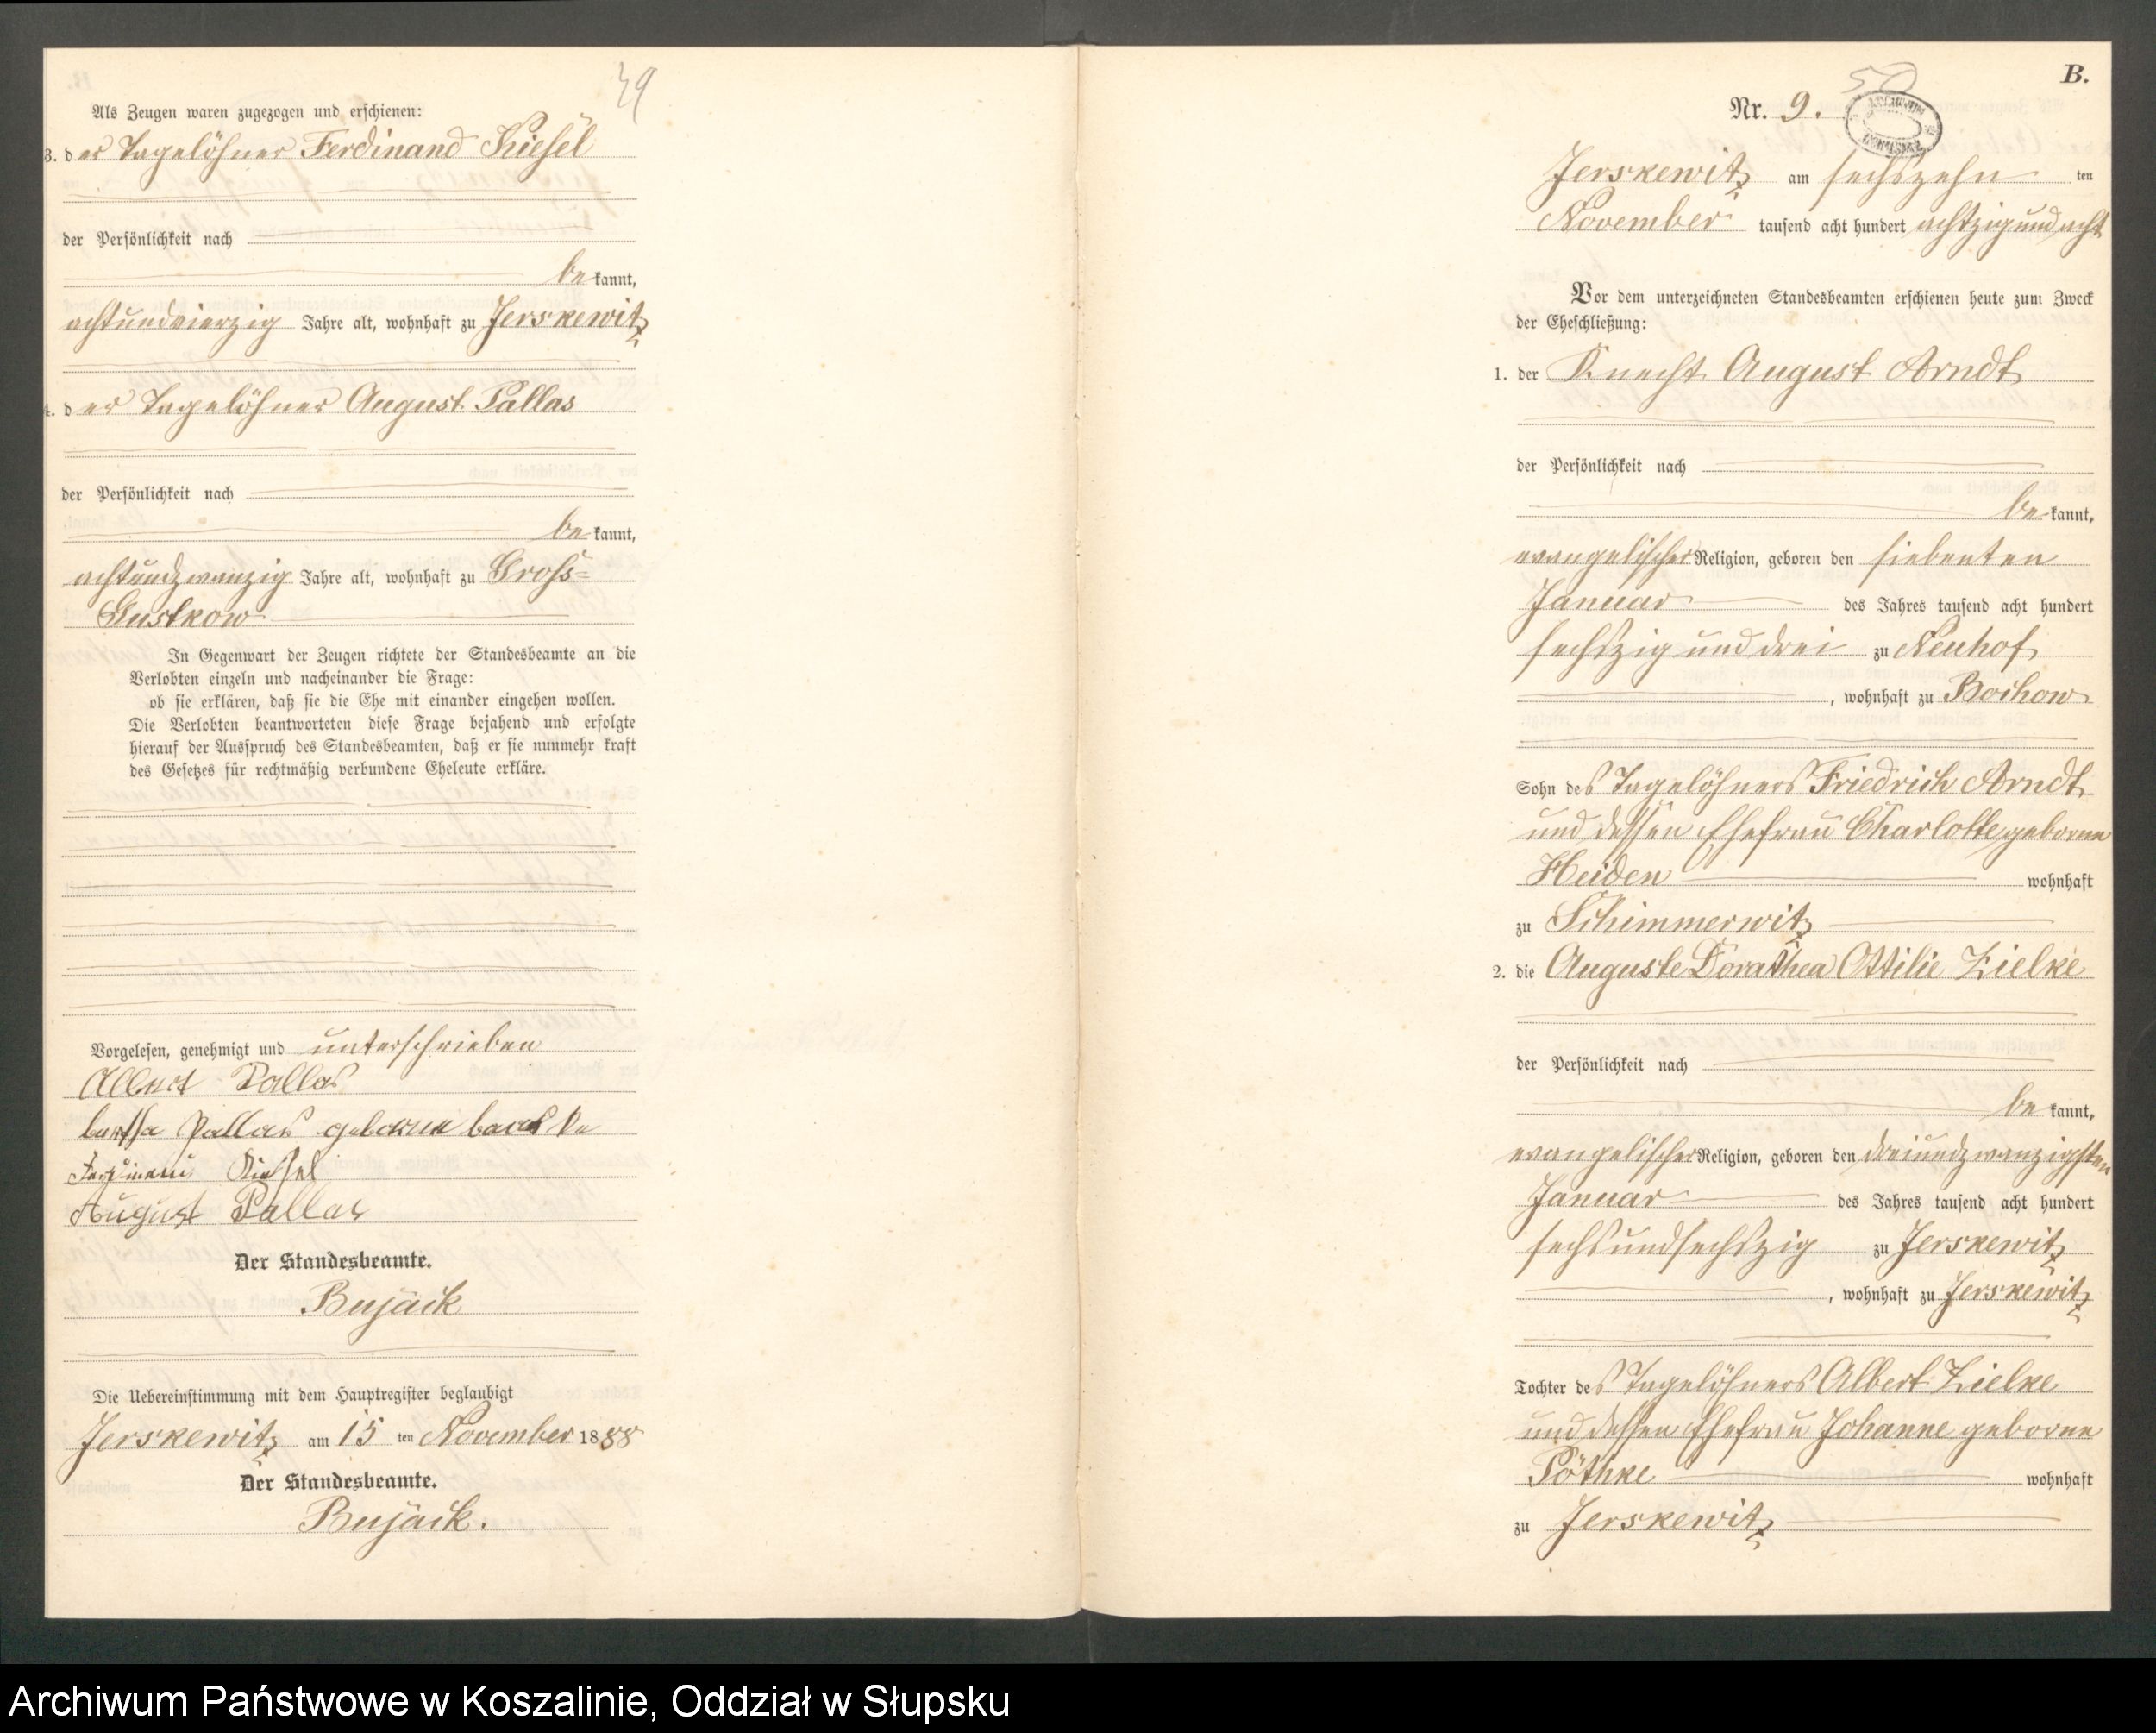 49
Als Zeugen waren zugezogen und erschienen:
3. der Tagelöhner Ferdinand Kiesel
der Persönlichkeit nach
bekannt,
achtundvierzig Jahre alt, wohnhaft zu Jerskewitz
4. der Tagelöhner August Pallas
der Persönlichkeit nach
bekannt,
achtundzwanzig Jahre alt, wohnhaft zu Gross-
Gustkow
In Gegenwart der Zeugen richtete der Standesbeamte an die
Verlobten einzeln und nacheinander die Frage:
ob sie erklären, daß sie die Ehe mit einander eingehen wollen.
Die Verlobten beantworteten diese Frage bejahend und erfolgte
hierauf der Ausspruch des Standesbeamten, daß er sie nunmehr kraft
des Gesetzes für rechtmäßig verbundene Eheleute erkläre.
Vorgelesen, genehmigt und unterschrieben
Albert Pallas
Pallas geborene
Ferdinand Kiesel
August Pallas
Der Standesbeamte.
Bujack
Die Uebereinstimmung mit dem Hauptregister beglaubigt
Jerskewitz am 15 ten November 1888
Der Standesbeamte.
Bujack.
B.
50
Nr. 9.
ARCHIWUM
Jerskewitz am sechszehn ten
November tausend acht hundert achtzig und acht
Vor dem unterzeichneten Standesbeamten erschienen heute zum Zweck
der Eheschließung:
1. der Knecht August Arndt
der Persönlichkeit nach
bekannt,
evangelischer Religion, geboren den siebenten
Januar des Jahres tausend acht hundert
sechszig und drei zu Neuhof
, wohnhaft zu Bochow
Sohn des Tagelöhners Friedrich Arndt
und dessen Ehefrau Charlotte geborne
Heiden wohnhaft
zu Schimmerwitz
2. die Auguste Dorathea Ottilie Zielke
der Persönlichkeit nach
bekannt,
evangelischer Religion, geboren den dreiundzwanzigsten
Januar des Jahres tausend acht hundert
sechsundsechszig zu Jerskewitz
, wohnhaft zu Jerskewitz
Tochter des Tagelöhners Albert Zielke
und dessen Ehefrau Johanne geborne
Pöthke wohnhaft
zu Jerskewitz
Archiwum Państwowe w Koszalinie, Oddział w Słupsku